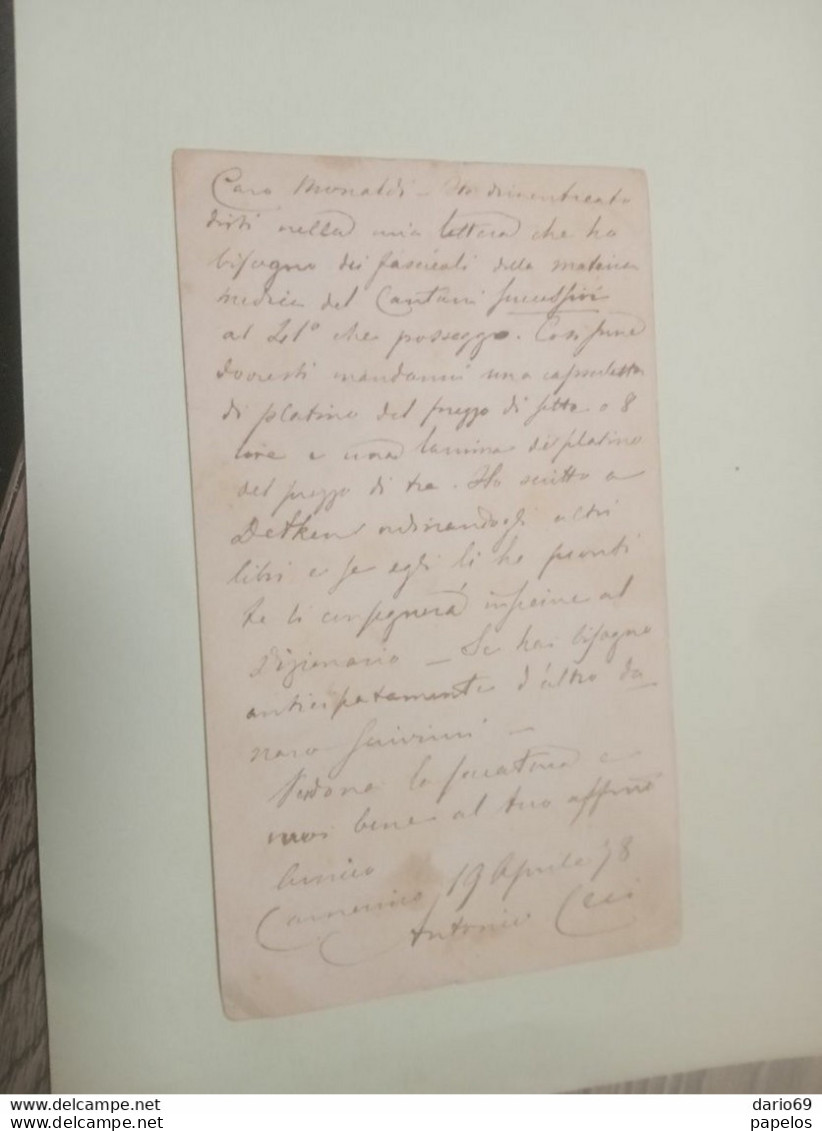 Caro Monaldi – dimenticato
dirti nella mia lettera che ho
bisogno dei fascicoli della materia
medica del Cantani successivi
al 21° che posseggo. Così pure
dovresti mandarmi una capsuletta
di platino del prezzo di sette o 8
lire e una lamina di platino
del prezzo di tre. Ho scritto a
Detken ordinandogli altri
libri e se egli li ha pronti
te li consegnerà insieme al
Dizionario – Se hai bisogno
anticipatamente d'altro da
naro scrivimi –
Perdona la seccatura e
bene al tuo affmo
Amico
Camerino 19 Aprile 78
Antonio Ceci
https://www.delcampe.net
dario69
https://www.delcampe.net
papelos